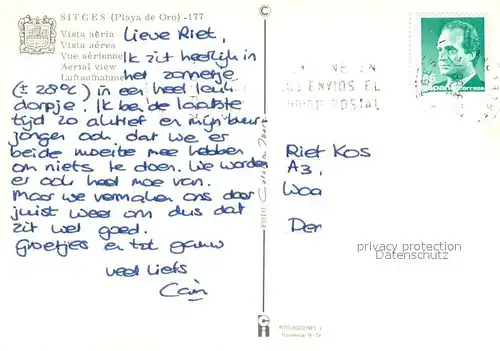 SITGES (Playa de Oro) -177
Vista aèria
Vista aérea
Vue aérienne
Aerial view
Luftaufnahme
Lieve Riet,
Ik zit heerlijk in
het zonnetje
(± 28°C) in een heel leuk
dorpje. Ik ben de laatste
tijd zo aktief en mijn buur
jongen ook dat we er
beide moeite mee hebben
om niets te doen. We worden
er ook heel moe van.
Maar we vermaken ons door
juist weer om dus dat
zit wel goed.
Groetjes en tot gauw
veel liefs
FOTO
C
España correos
ENVIOS EL
POSTAL
Riet Kos
A3,
Woa
Der
privacy protection
Datenschutz